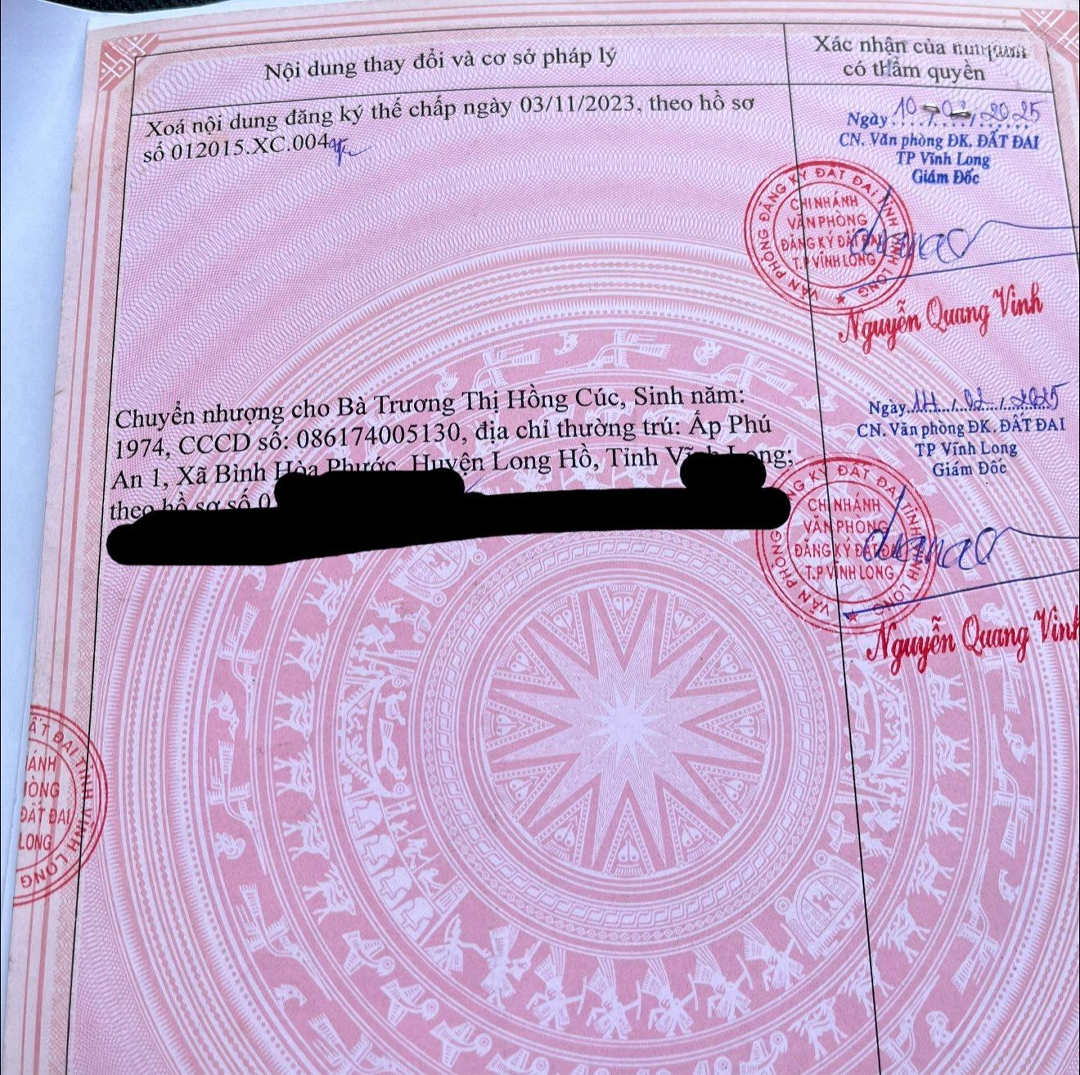 Nội dung thay đổi và cơ sở pháp lý
Xác nhận của
có thẩm quyền
Xoá nội dung đăng ký thế chấp ngày 03/11/2023, theo hồ sơ
số 012015.XC.004
Ngày 10 2025
CN. Văn phòng ĐK. ĐẤT ĐAI
TP Vĩnh Long
Giám Đốc
VĂN PHÒNG ĐĂNG KÝ ĐẤT ĐAI TỈNH VĨNH LONG
CHI NHÁNH
VĂN PHÒNG
ĐĂNG KÝ ĐẤT ĐAI
T.P VĨNH LONG
Nguyễn Quang Vinh
Chuyển nhượng cho Bà Trương Thị Hồng Cúc, Sinh năm:
1974, CCCD số: 086174005130, địa chỉ thường trú: Ấp Phú
An 1, Xã Bình Hòa Phước, Huyện Long Hồ, Tỉnh Vĩnh Long;
theo hồ sơ số 0
Ngày 14/02/2025
CN. Văn phòng ĐK. ĐẤT ĐAI
TP Vĩnh Long
Giám Đốc
VĂN PHÒNG ĐĂNG KÝ ĐẤT ĐAI TỈNH VĨNH LONG
CHI NHÁNH
VĂN PHÒNG
ĐĂNG KÝ ĐẤT ĐAI
T.P VĨNH LONG
Nguyễn Quang Vinh
ĐẤT ĐAI TỈNH VĨNH LONG
ÁNH
HÒNG
ĐẤT ĐAI
LONG